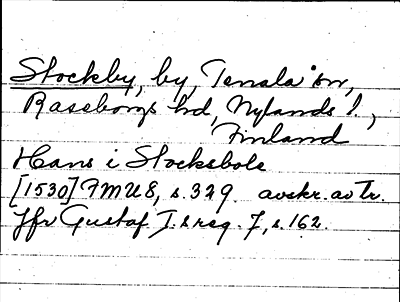 Stockby, by, Tenala sn,
Raseborgs hd, Nylands l.,
Finland
Hans i Stocksbole
[1530] FMU 8, s. 329. avskr. av Tr.
Jfr Gustaf I:s reg. 7, s. 162.